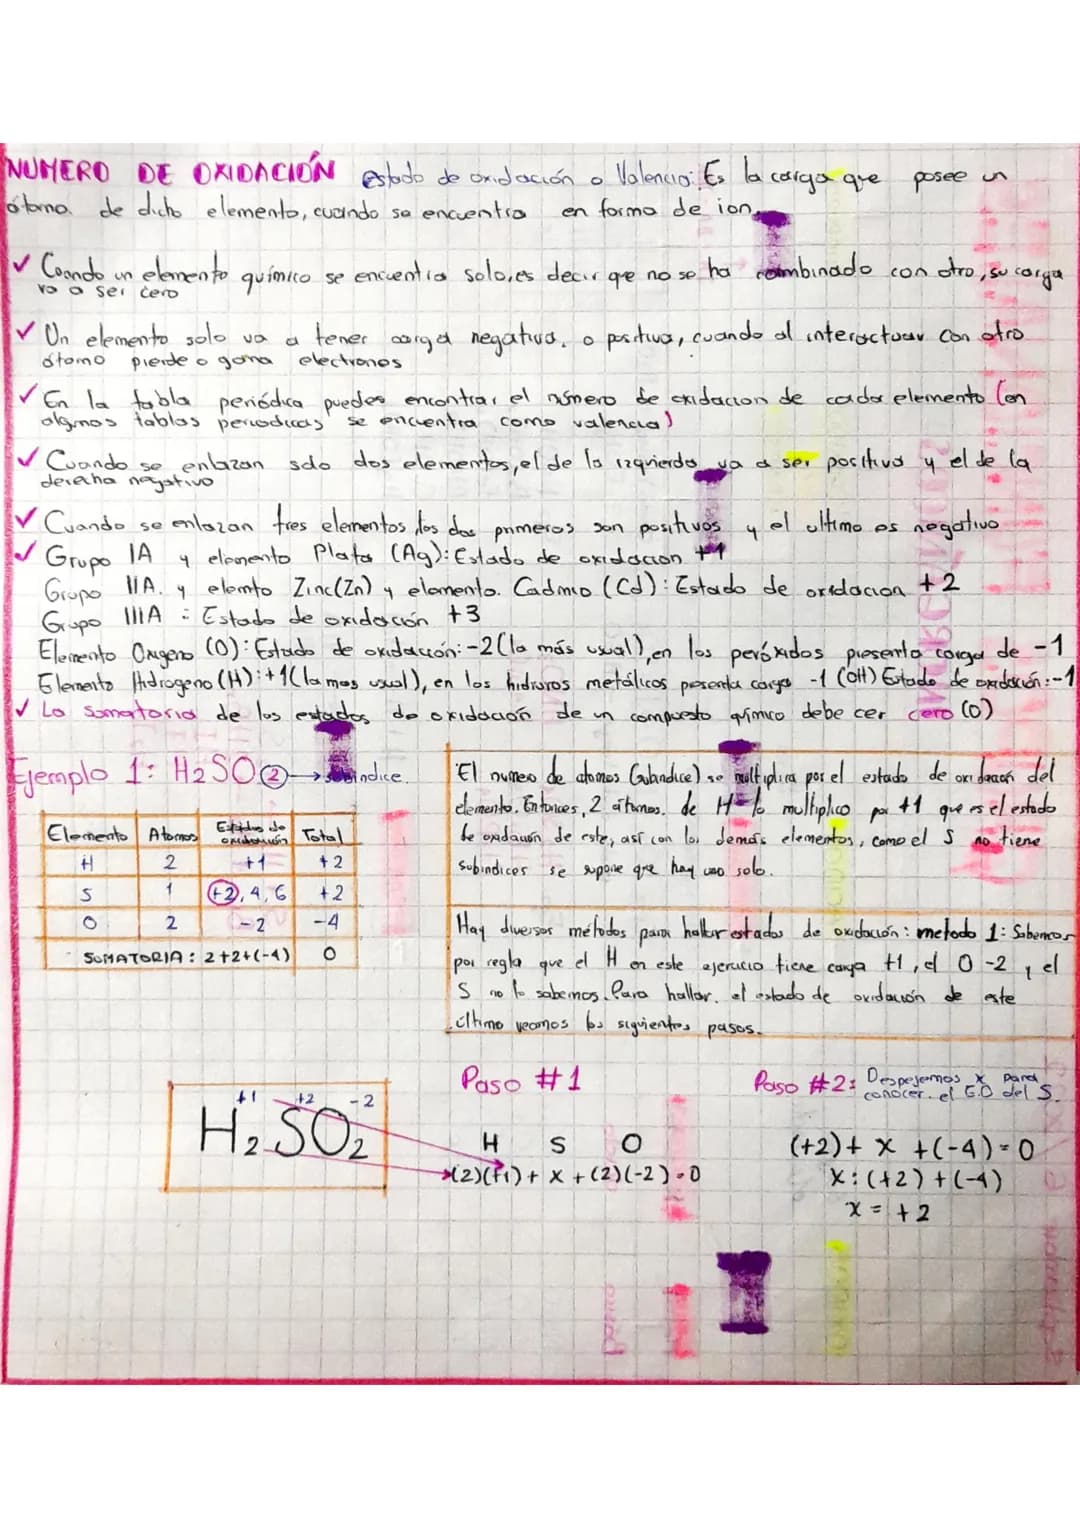 NUMERO DE OXIDACIÓN estado de oxidación o Valencia: Es la carga que posee un
átomo de dicho elemento, cuando se encuentra en forma de ion.
✓ Cuando un elemento químico se encuentra solo, es decir que no se ha combinado con otro, su carga
va a ser cero
✓ Un elemento solo va a tener carga negativa, o positiva, cuando al interactuar con otro
átomo pierde o gana electrones
✓ En la tabla periódica puedes encontrar el número de oxidacion de cada elemento (en
algunos tablas periodicas se encuentra como valencia)
✓ Cuando se enlazan solo dos elementos, el de la izquierda va a ser positivo y el de la
derecha negativo
✓ Cuando se enlazan tres elementos los dos primeros son positivos y el ultimo es negativo
✓ Grupo IA y elemento Plata (Ag): Estado de oxidacion +1
Grupo IIA. y elemto Zinc(Zn) y elemento. Cadmio (Cd): Estado de oxidacion +2
Grupo IIIA : Estado de oxidación +3
Elemento Oxigeno (O): Estado de oxidación: -2 (la más usual), en los peróxidos presenta carga de -1
Elemento Hidrogeno (H): +1 (la mas usual), en los hidruros metálicos presenta carga -1 (OH) Estado de oxidación: -1
✓ La Somatoria de los estados de oxidación de un compuesto químico debe cer cero (0)
Ejemplo 1: H2SO2 → subindice.
Elemento Atomos Estados de oxidacion Total
H 2 +1 +2
S 1 +2, 4, 6 +2
O 2 -2 -4
SUMATORIA: 2+2+(-4) 0
El numero de atomos (subindice) se multiplica por el estado de oxidacion del
elemento. Entonces, 2 átomos. de H lo multiplico por +1 que es el estado
de oxidación de este, así con los demás elementos, como el S no tiene
subindices se supone que hay uno solo.
Hay diversos métodos para hallar estados de oxidación: metodo 1: Sabemos
por regla que el H en este ejercicio tiene carga +1, el O -2 y el
S no lo sabemos. Para hallar. el estado de oxidación de este
último veamos los siguientes pasos.
+1 +2 -2
H2SO2
Paso #1
H S O
(2)(+1) + x + (2)(-2) = 0
Paso #2: Despejemos x para
conocer. el E.O del S.
(+2) + x + (-4) = 0
x: (+2) + (-4)
x = +2